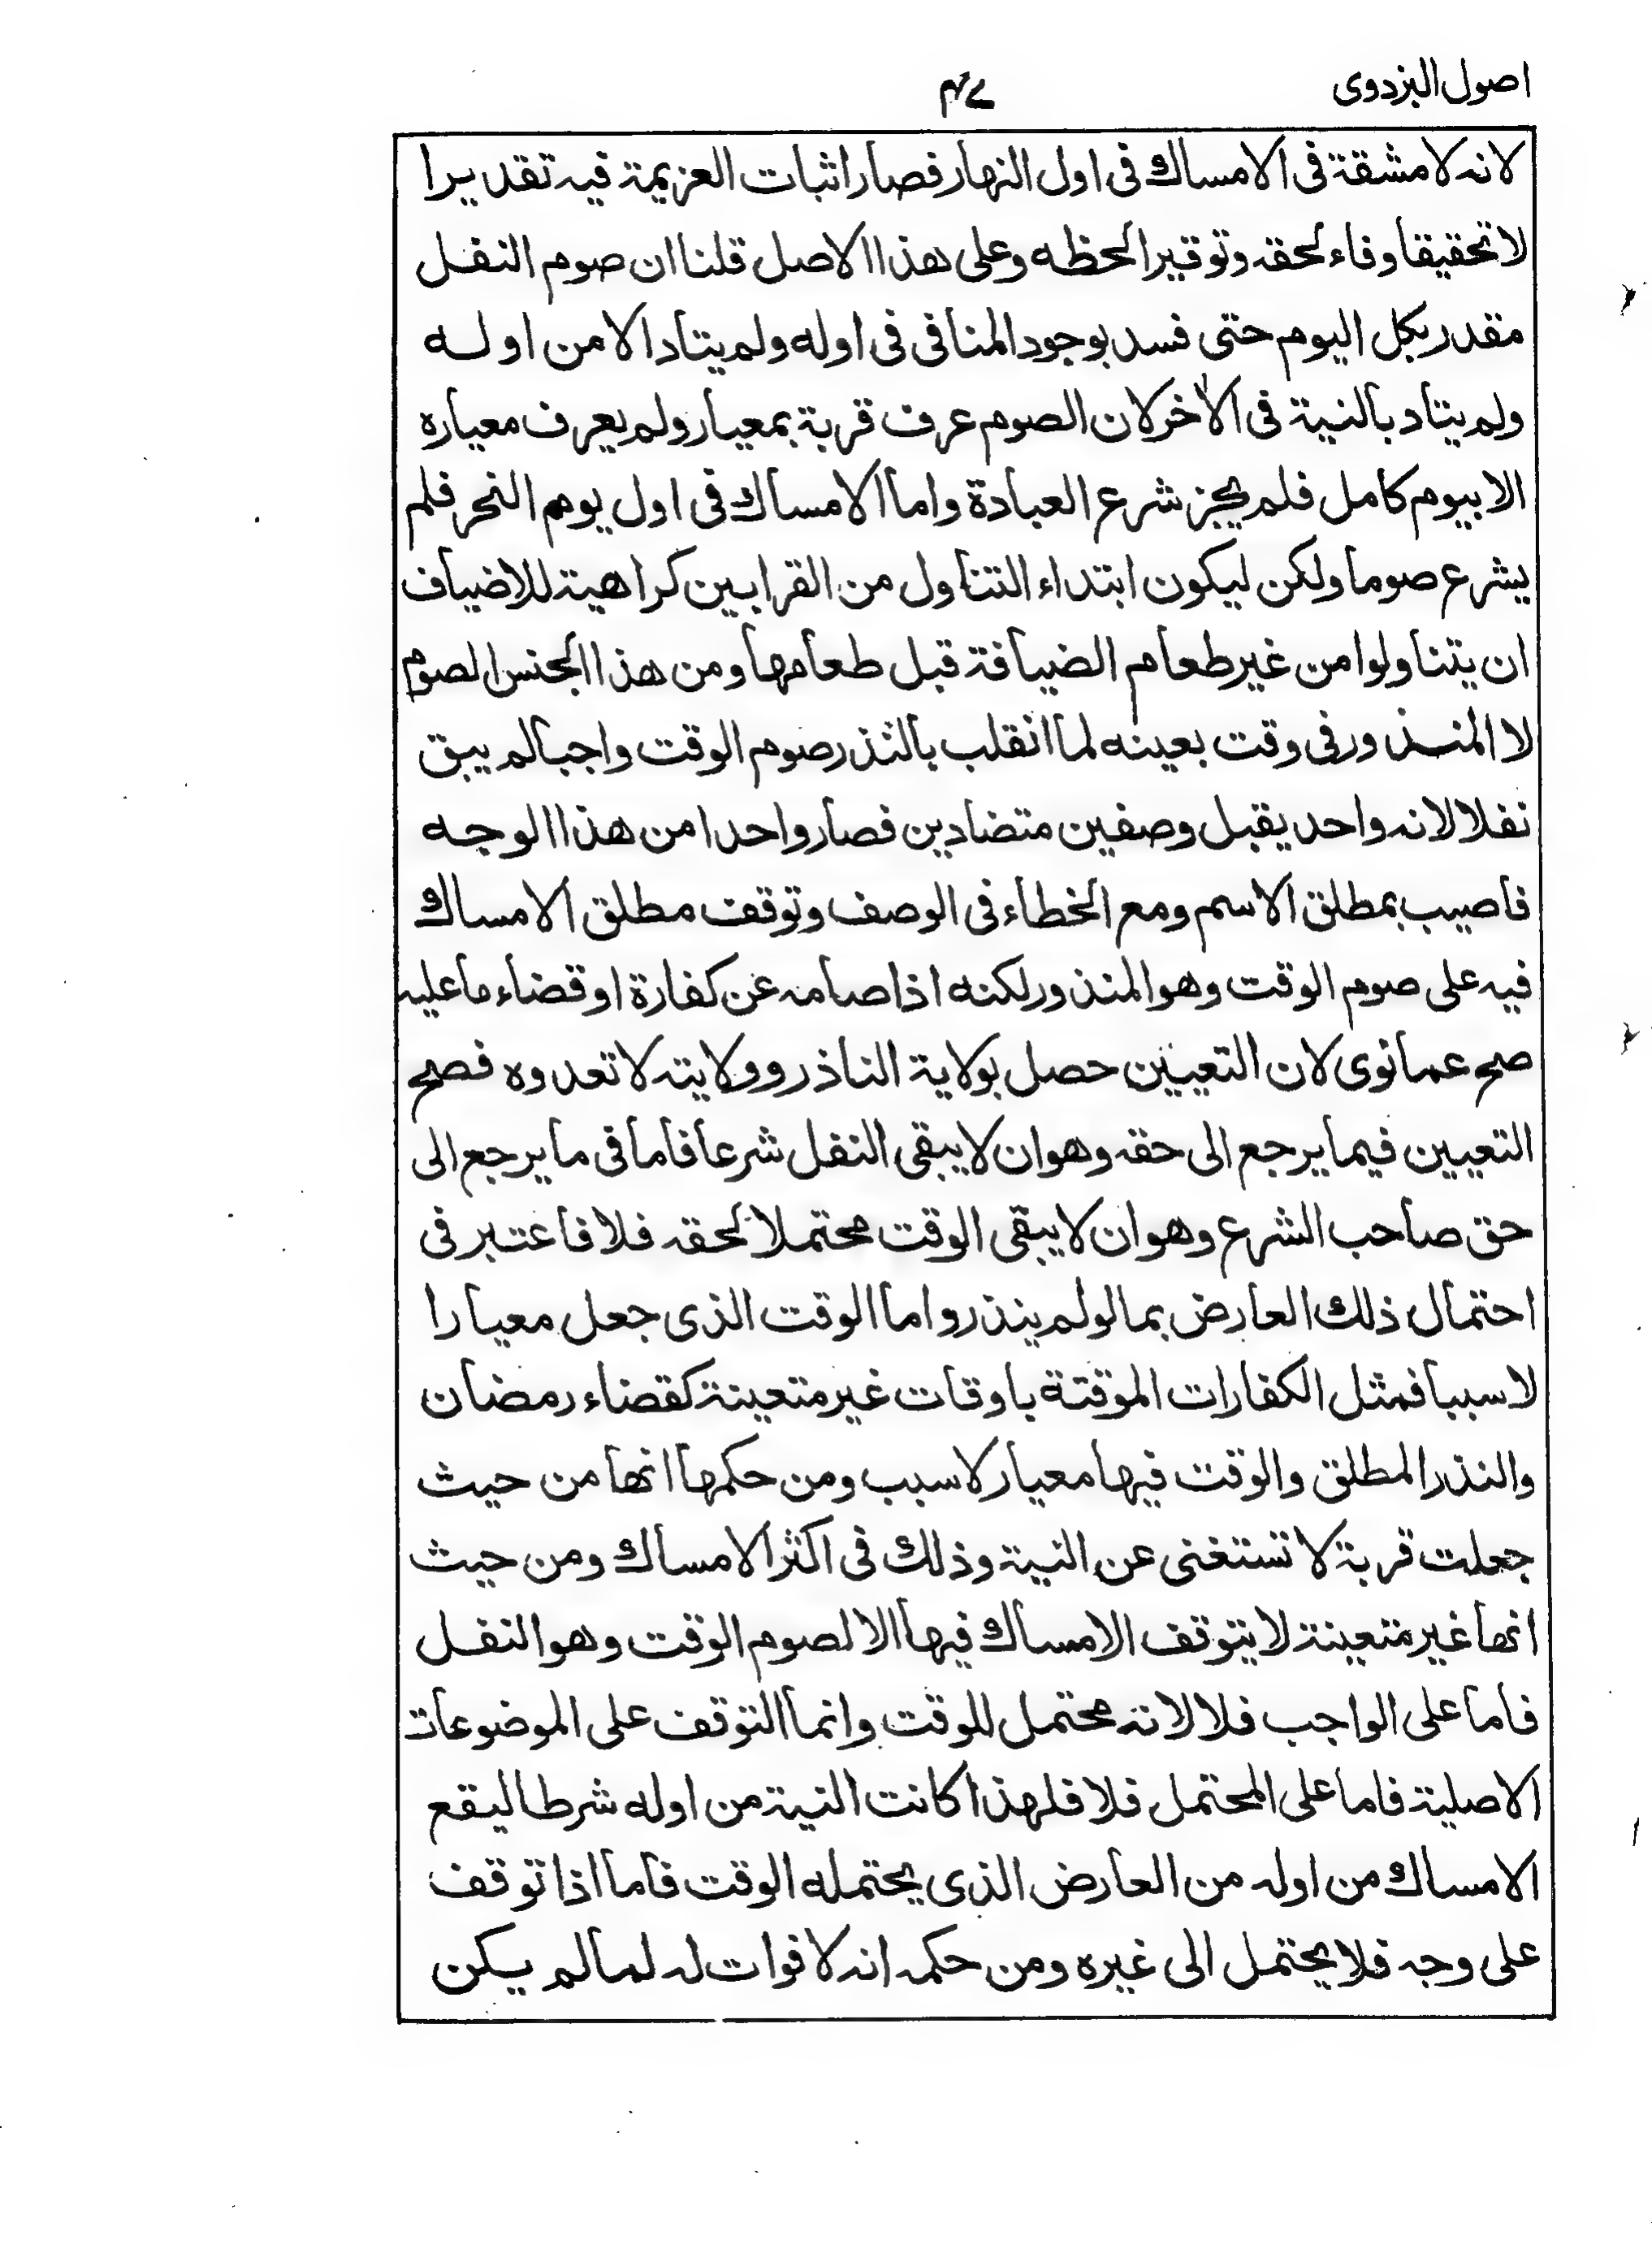 اصول البزدوی
۴۷
لانه لا مشقة فی الامساك فی اول النهار فصار اثبات العزیمة فیه تقدیرا
لا تحقیقا وفاء لحقه وتوقیرا لحظه وعلی هذا الاصل قلنا ان صوم النفل
مقدر بكل الیوم حتی فسد بوجود المنافی فی اوله ولم یتاد الا من اوله
ولم یتاد بالنیة فی الاٰخر لان الصوم عرف قربة بمعیار ولم یعرف معیاره
الا بیوم كامل فلم یجز شرع العبادة واما الامساك فی اول یوم النحر فلم
یشرع صوما ولكن لیكون ابتداء التناول من القرابین كراهیة للاضیاف
ان یتناولوا من غیر طعام الضیافة قبل طعامها ومن هذا الجنس الصوم
لا المنذور فی وقت بعینه لما انقلب بالنذر صوم الوقت واجبا لم یبق
نفلا لانه واحد یقبل وصفین متضادین فصار واحدا من هذا الوجه
فاصیب بمطلق الاسم ومع الخطاء فی الوصف وتوقف مطلق الامساك
فیه علی صوم الوقت وهو المنذور لكنه اذا صامه عن كفارة او قضاء ما علیه
صح عما نوی لان التعیین حصل بولایة الناذر وولایته لا تعدوه فصح
التعیین فیما یرجع الی حقه وهو ان لا یبقی النفل شرعا فاما فی ما یرجع الی
حق صاحب الشرع وهو ان لا یبقی الوقت محتملا لحقه فلا فاعتبر فی
احتمال ذلك العارض بما لو لم ینذر واما الوقت الذی جعل معیارا
لا سببا فمثل الكفارات الموقتة باوقات غیر متعینة كقضاء رمضان
والنذر المطلق والوقت فیها معیار لا سبب ومن حكمها انها من حیث
جعلت قربة لا تستغنی عن النیة وذلك فی اكثر الامساك ومن حیث
انها غیر متعینة لا یتوقف الامساك فیها الا لصوم الوقت وهو النفل
فاما علی الواجب فلا لانه محتمل للوقت وانما التوقف علی الموضوعات
الاصلیة فاما علی المحتمل فلا فلهذا كانت النیة من اوله شرطا لیقع
الامساك من اوله من العارض الذی یحتمله الوقت فاما اذا توقف
علی وجه فلا یحتمل الی غیره ومن حكمه انه لا فوات له لما لم یكن